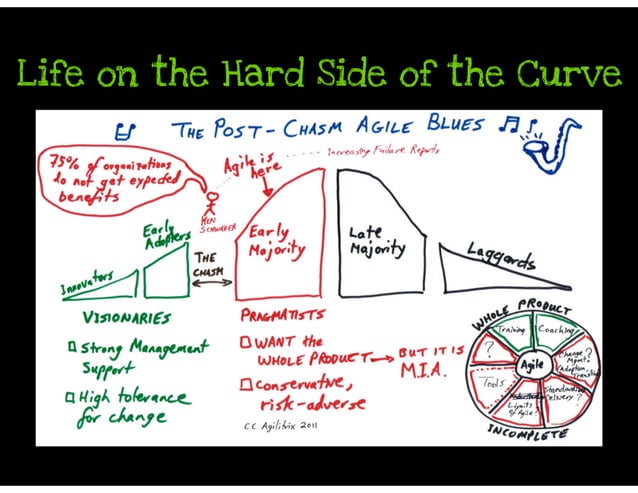 Life on the Hard Side of the Curve
THE POST-CHASM AGILE BLUES
Increasing Failure Reports
75% of organizations
do not get expected
benefits
Agile is
here
KEN
SCHWABER
Early
Adopters
Innovators
THE
CHASM
Early
Majority
Late
Majority
Laggards
VISIONARIES
Strong Management
Support
High tolerance
for change
PRAGMATISTS
WANT the
WHOLE PRODUCT
BUT IT IS
M.I.A.
Conservative,
risk-adverse
CC Agilitrix 2011
WHOLE PRODUCT
Training
Coaching
?
Change ?
Mgmt.
Adoption,
Transition
Agile
Tools
Standard
Delivery?
Limits
of Agile?
INCOMPLETE